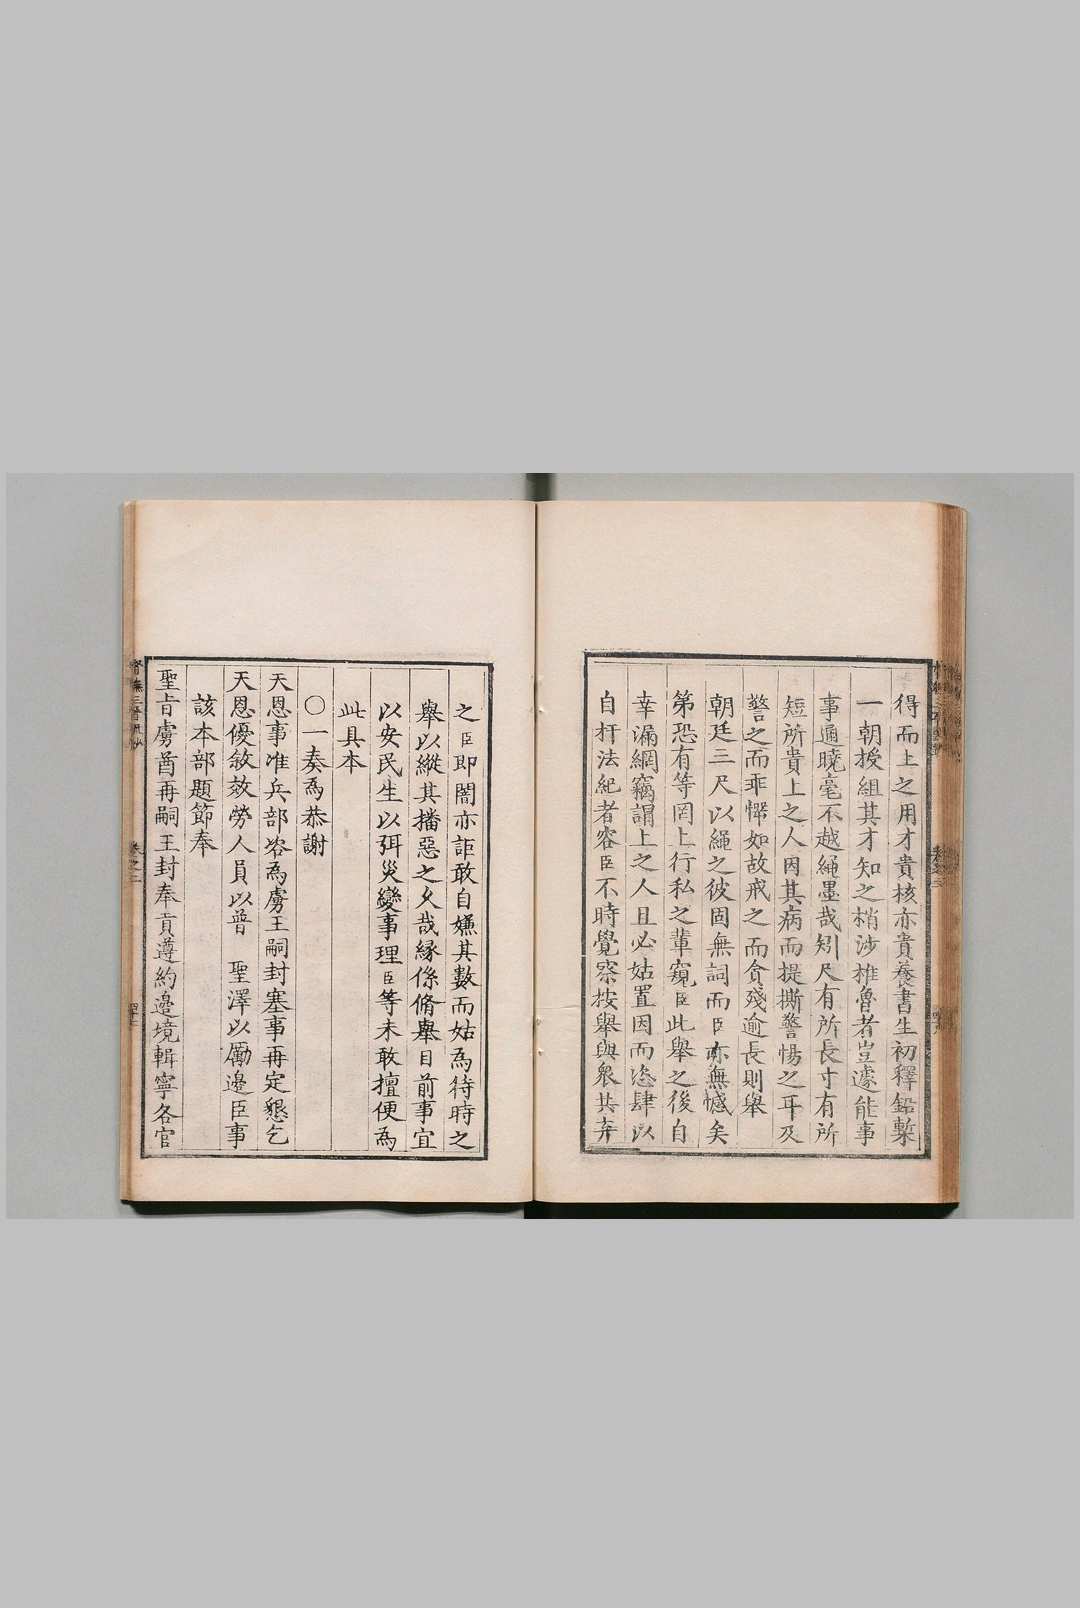 得而上之用才貴核亦貴養書生初釋鉛槧
一朝授組其才知之稍涉椎魯者豈遽能事
事通曉毫不越繩墨哉矧尺有所長寸有所
短所貴上之人因其病而提撕警惕之耳及
警之而乖懧如故戒之而貪殘逾長則舉
朝廷三尺以繩之彼固無詞而臣亦無憾矣
第恐有等罔上行私之輩窺臣此舉之後自
幸漏網竊謂上之人且必姑置因而恣肆以
自扞法紀者容臣不時覺察按舉與眾共弃
之臣即闇亦詎敢自嫌其數而姑爲待時之
舉以縱其播惡之久哉緣係脩舉目前事宜
以安民生以弭災變事理臣等未敢擅便爲
此具本
〇一奏爲恭謝
天恩事准兵部咨爲虜王嗣封塞事再定懇乞
天恩優敘效勞人員以普 聖澤以勵邊臣事
該本部題節奉
聖旨虜酋再嗣王封奉貢遵約邊境輯寧各官